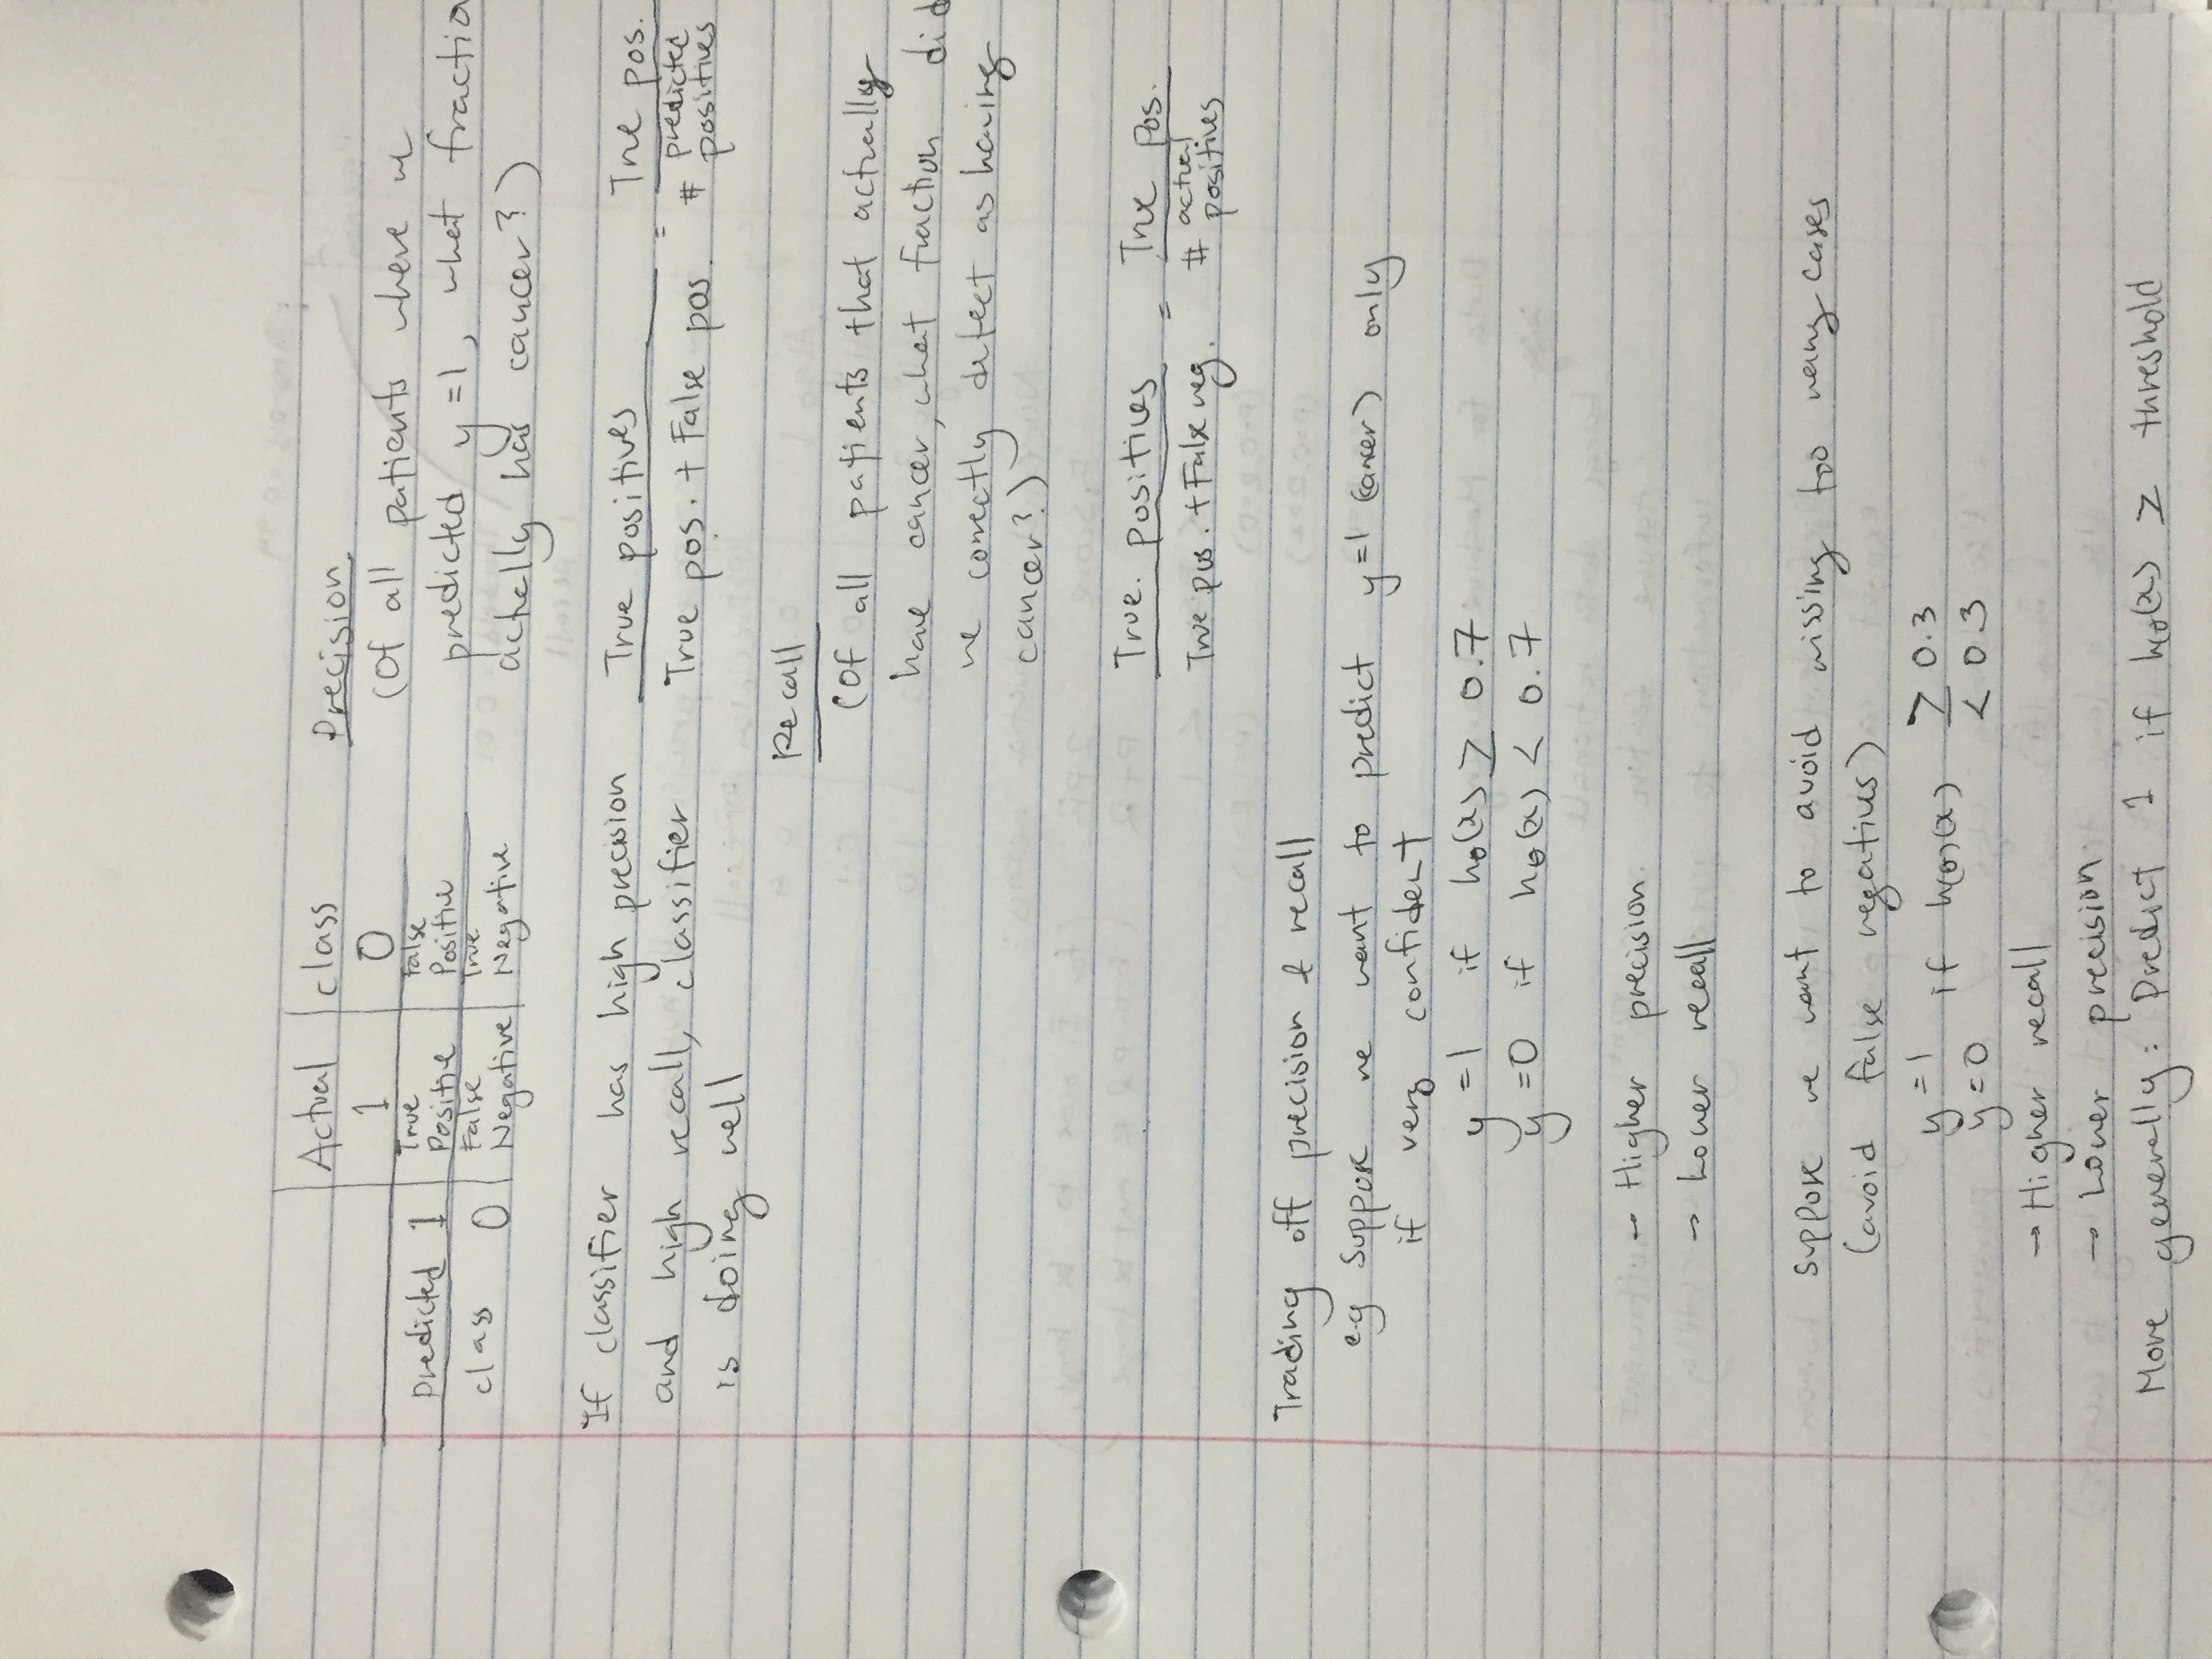 Actual class
1 0
Predicted 1 True Positive False Positive
class 0 False Negative True Negative
Precision
(Of all patients where we
predicted y=1, what fractio
actually has cancer?)
True positives / True pos. + False pos. = True pos. / # predicted positives
If classifier has high precision
and high recall, classifier
is doing well
Recall
(Of all patients that actually
have cancer, what fraction did
we correctly detect as having
cancer?)
True. positives / True pos. + False neg. = True Pos. / # actual positives
Trading off precision & recall
e.g Suppose we want to predict y=1 (cancer) only
if very confident
y=1 if hθ(x) ≥ 0.7
y=0 if hθ(x) < 0.7
→ Higher precision.
→ Lower recall
Suppose we want to avoid missing too many cases
(avoid false negatives)
y=1 if h(θ)(x) ≥ 0.3
y=0 < 0.3
→ Higher recall
→ Lower precision.
More generally: Predict 1 if hθ(x) ≥ threshold